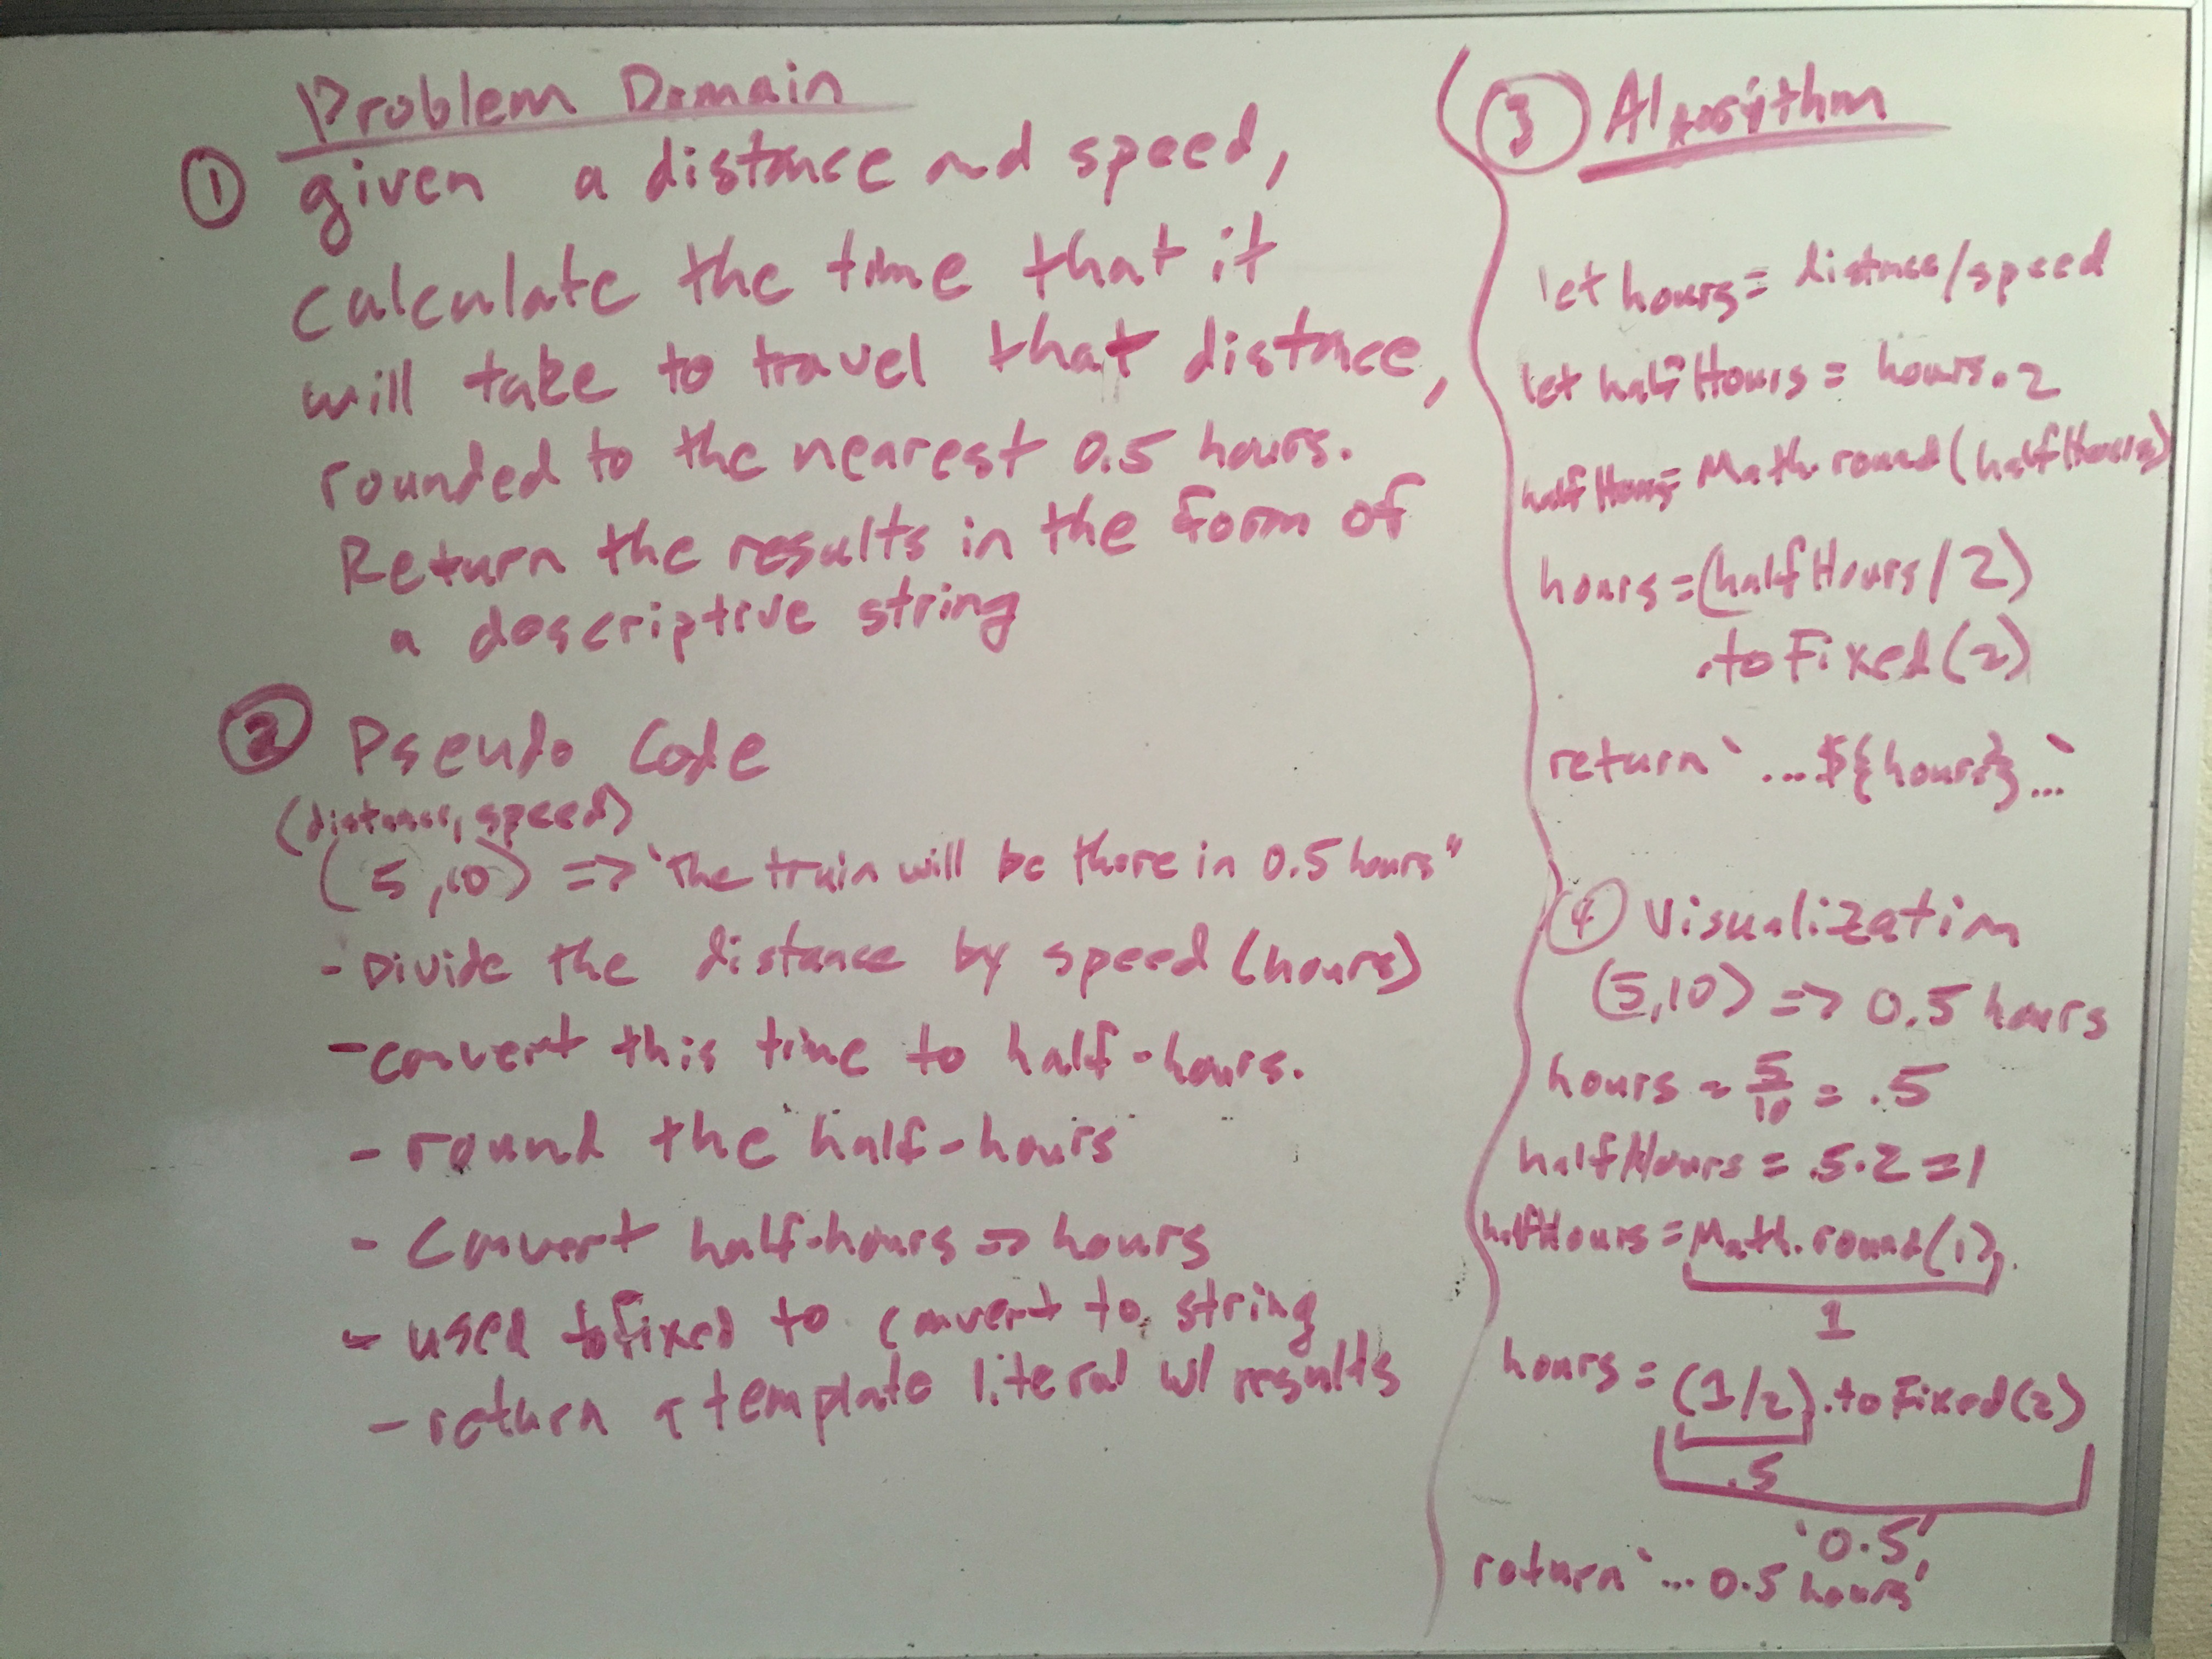 Problem Domain
① given a distance and speed,
calculate the time that it
will take to travel that distance,
rounded to the nearest 0.5 hours.
Return the results in the form of
a descriptive string
② Pseudo Code
(distance, speed)
(5,10) => "The train will be there in 0.5 hours"
- Divide the distance by speed (hours)
- convert this time to half-hours.
- round the half-hours
- Convert half-hours => hours
- used toFixed to convert to string
- return a template literal w/ results
③ Algorithm
let hours = distance/speed
let halfHours = hours · 2
halfHours = Math.round(halfHours)
hours = (halfHours/2)
.toFixed(2)
return `...${hours}...`
④ Visualization
(5,10) => 0.5 hours
hours = 5/10 = .5
halfHours = .5 · 2 = 1
halfHours = Math.round(1).
1
hours = (1/2).toFixed(2)
.5
'0.5'
return `...0.5 hours'